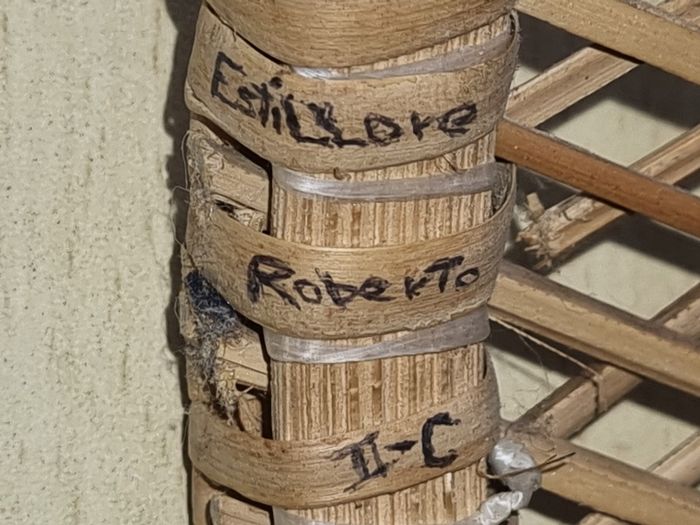 Estillore
Roberto
II-C